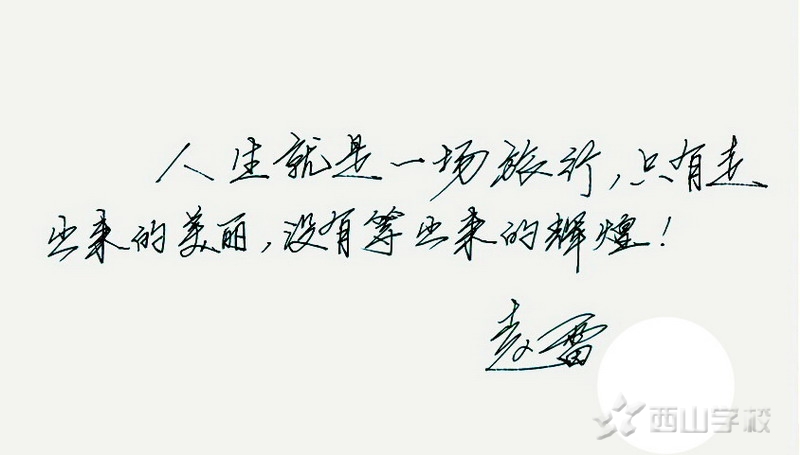 人生就是一场旅行，只有走
出来的美丽，没有等出来的辉煌！
赵雷
西山学校